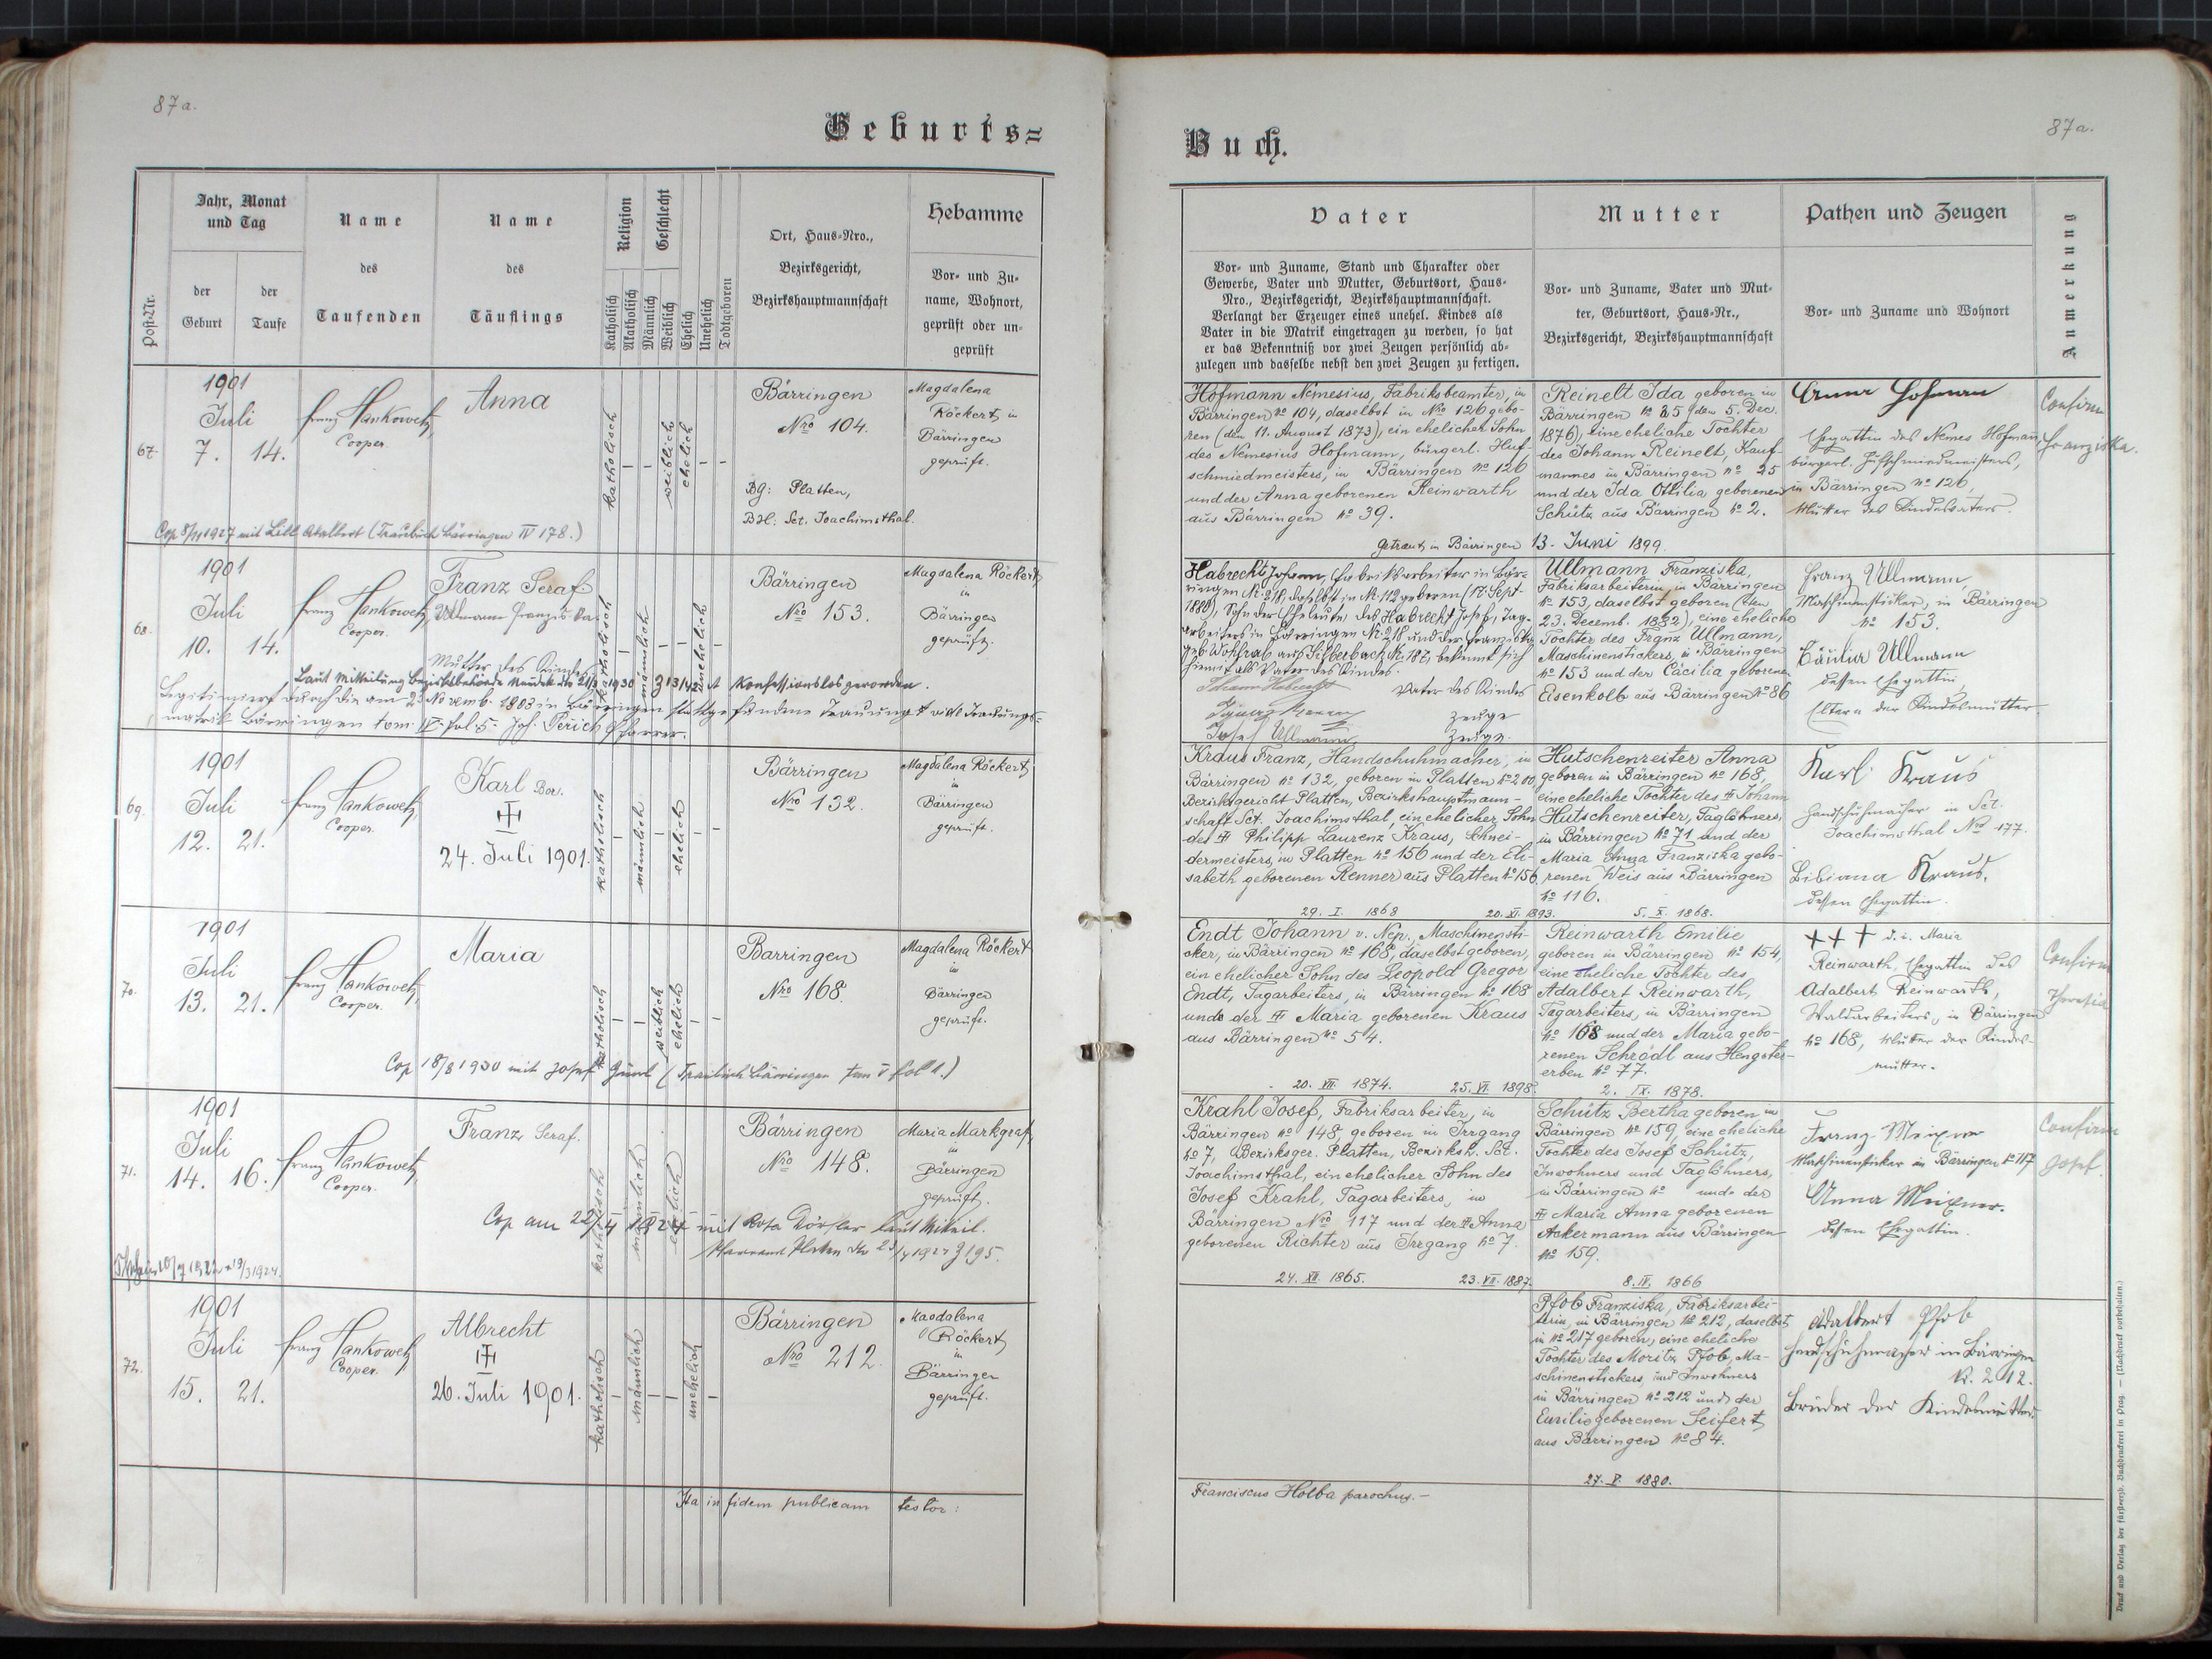 87a.
Geburts=
Post-Nr.
Jahr, Monat
und Tag
der
Geburt
der
Taufe
Name
des
Taufenden
Name
des
Täuflings
Religion
Katholisch
Akatholisch
Geschlecht
Männlich
Weiblich
Ehelich
Unehelich
Todtgeboren
Ort, Haus-Nro.,
Bezirksgericht,
Bezirkshauptmannschaft
Hebamme
Vor- und Zu-
name, Wohnort,
geprüft oder un-
geprüft
67.
1901
Juli
7. 14.
Franz Hankowetz,
Cooper.
Anna
katholisch
weiblich
ehelich
Bärringen
Nro 104.
BG: Platten,
BH: Sct. Joachimsthal.
Magdalena
Röckert, in
Bärringen
geprüft.
Cop 8/11 1927 mit Lill Adalbert (Traubuch Bärringen IV 178.)
68.
1901
Juli
10. 14.
Franz Hankowetz,
Cooper.
Franz Seraf.
Ullmann Franzis-ka
Mutter des Kindes
katholisch
männlich
unehelich
Bärringen
Nro 153.
Magdalena Röckert,
in
Bärringen
geprüft.
Laut Mitteilung Bezirksbehörde Neudek dto 21/3 1930 konfessionslos geworden.
Legitimiert durch die am 23. Novemb. 1903 in Bärringen stattgefundene Trauung vide Trauungs-
matrik Bärringen tom: IV fol 5. Joh. Perich Pfarrer.
69.
1901
Juli
12. 21.
Franz Hankowetz,
Cooper.
Karl Bor.
24. Juli 1901.
katholisch
männlich
ehelich
Bärringen
Nro 132.
Magdalena Röckert,
in
Bärringen
geprüft.
70.
1901
Juli
13. 21.
Franz Hankowetz,
Cooper.
Maria
katholisch
weiblich
ehelich
Bärringen
Nro 168.
Magdalena Röckert
in
Bärringen
geprüft.
Cop 18/8 1930 mit Josef (Traubuch Bärringen tom V fol 1.)
71.
1901
Juli
14. 16.
Franz Hankowetz,
Cooper.
Franz Seraf.
katholisch
männlich
ehelich
Bärringen
Nro 148.
Maria Markgraf,
in
Bärringen
geprüft.
Cop am 22/4 1924 mit Rosa Dörfler laut Mitteil.
Pfarramt Platten
72.
1901
Juli
15. 21.
Franz Hankowetz,
Cooper.
Albrecht
26. Juli 1901.
katholisch
männlich
unehelich
Bärringen
Nro 212.
Magdalena
Röckert,
in
Bärringen
geprüft.
Ita in fidem publicam testor:
Buch.
87a.
Vater
Vor- und Zuname, Stand und Charakter oder
Gewerbe, Vater und Mutter, Geburtsort, Haus-
Nro., Bezirksgericht, Bezirkshauptmannschaft.
Verlangt der Erzeuger eines unehel. Kindes als
Vater in die Matrik eingetragen zu werden, so hat
er das Bekenntniß vor zwei Zeugen persönlich ab-
zulegen und dasselbe nebst den zwei Zeugen zu fertigen.
Mutter
Vor- und Zuname, Vater und Mut-
ter, Geburtsort, Haus-Nr.,
Bezirksgericht, Bezirkshauptmannschaft
Pathen und Zeugen
Vor- und Zuname und Wohnort
Anmerkung
Hofmann Nemesius, Fabriksbeamter, in
Bärringen No 104, daselbst in Nro 126 gebo-
ren (den 11. August 1873), ein ehelicher Sohn
des Nemesius Hofmann, bürgerl. Huf-
schmiedmeisters, in Bärringen No 126
und der Anna geborenen Reinwarth
aus Bärringen No 39.
Reinelt Ida geboren in
Bärringen No 25 (den 5. Dec.
1876), eine eheliche Tochter
des Johann Reinelt, Kauf-
mannes in Bärringen No 25
und der Ida Ottilia geborenen
Schütz aus Bärringen No 2.
Anna Hofmann
Ehegattin des Nemes Hofmann,
bürgerl. Hufschmiedmeisters,
in Bärringen No 126,
Mutter des Kindesvaters.
Confirm
Franziska.
Getraut in Bärringen 13. Juni 1899.
Habrecht Johann, Fabriksarbeiter in Bär-
ringen Nr. 218, daselbst in Nr. 112 geboren (17. Sept.
1880), Sohn der Eheleute, des Habrecht Josef, Tag-
arbeiters in Bärringen Nr. 218 und der Franziska
geb. Wohlrab aus Silberbach Nr. 187, bekennt sich
hiemit als Vater des Kindes.
Johann Habrecht Vater des Kindes
Zeuge
Josef Ullmann Zeuge.
Ullmann Franziska,
Fabriksarbeiterin, in Bärringen
No 153, daselbst geboren (den
23. Decemb. 1882), eine eheliche
Tochter des Franz Ullmann,
Maschinenstickers, in Bärringen
No 153 und der Cäcilia geborenen
Eisenkolb aus Bärringen No 86
Franz Ullmann,
Maschinensticker, in Bärringen
No 153.
Cäcilia Ullmann
dessen Ehegattin,
Eltern der Kindesmutter.
Kraus Franz, Handschuhmacher, in
Bärringen No 132, geboren in Platten No 200,
Bezirksgericht Platten, Bezirkshauptmann-
schaft Sct. Joachimsthal, ein ehelicher Sohn
des Philipp Laurenz Kraus, Schnei-
dermeisters, in Platten No 156 und der Eli-
sabeth geborenen Renner aus Platten No 156.
29. I. 1868 20. XI. 1893.
Hutschenreiter Anna
geboren in Bärringen No 168,
eine eheliche Tochter des Johann
Hutschenreiter, Taglöhners,
in Bärringen No 71 und der
Maria Anna Franziska gebo-
renen Weis aus Bärringen
No 116.
5. X. 1868.
Karl Kraus
Handschuhmacher in Sct.
Joachimsthal Nro 177.
Bibiana Kraus,
dessen Ehegattin.
Endt Johann v. Nep., Maschinensti-
cker, in Bärringen No 168, daselbst geboren,
ein ehelicher Sohn des Leopold Gregor
Endt, Tagarbeiters, in Bärringen No 168
und der Maria geborenen Kraus
aus Bärringen No 54.
20. VII. 1874. 25. VI. 1898.
Reinwarth Emilie
geboren in Bärringen No 154,
eine eheliche Tochter des
Adalbert Reinwarth,
Tagarbeiters, in Bärringen
No 168 und der Maria gebo-
renen Schrödl aus Hengster-
erben No 77.
2. IX. 1878.
+++ d. i. Maria
Reinwarth, Ehegattin des
Adalbert Reinwarth,
Waldarbeiters, in Bärringen
No 168, Mutter der Kindes-
mutter.
Confirm
Theresia
Krahl Josef, Fabriksarbeiter, in
Bärringen No 148, geboren in Irrgang
No 7, Bezirksger. Platten, Bezirksh. Sct.
Joachimsthal, ein ehelicher Sohn des
Josef Krahl, Tagarbeiters, in
Bärringen Nro 117 und der Anna
geborenen Richter aus Irrgang No 7.
24. XII. 1865. 23. VII. 1887.
Schütz Bertha geboren in
Bärringen No 159, eine eheliche
Tochter des Josef Schütz,
Inwohners und Taglöhners,
in Bärringen No und der
Maria Anna geborenen
Ackermann aus Bärringen
No 159.
8. IV. 1866
Franz Meixner
Maschinensticker in Bärringen No 117
Anna Meixner.
dessen Ehegattin.
Confirm
Josef.
Pfob Franziska, Fabriksarbei-
terin, in Bärringen No 212, daselbst
in No 217 geboren, eine eheliche
Tochter des Moritz Pfob, Ma-
schinenstickers und Inwohners
in Bärringen No 212 und der
Emilie geborenen Seifert
aus Bärringen No 84.
27. V. 1880.
Adalbert Pfob
Handschuhmacher in Bärringen
N. 212.
Bruder der Kindesmutter
Franciscus Holba parochus.-
Druck und Verlag der fürsterzb. Buchdruckerei in Prag. — (Nachdruck vorbehalten.)